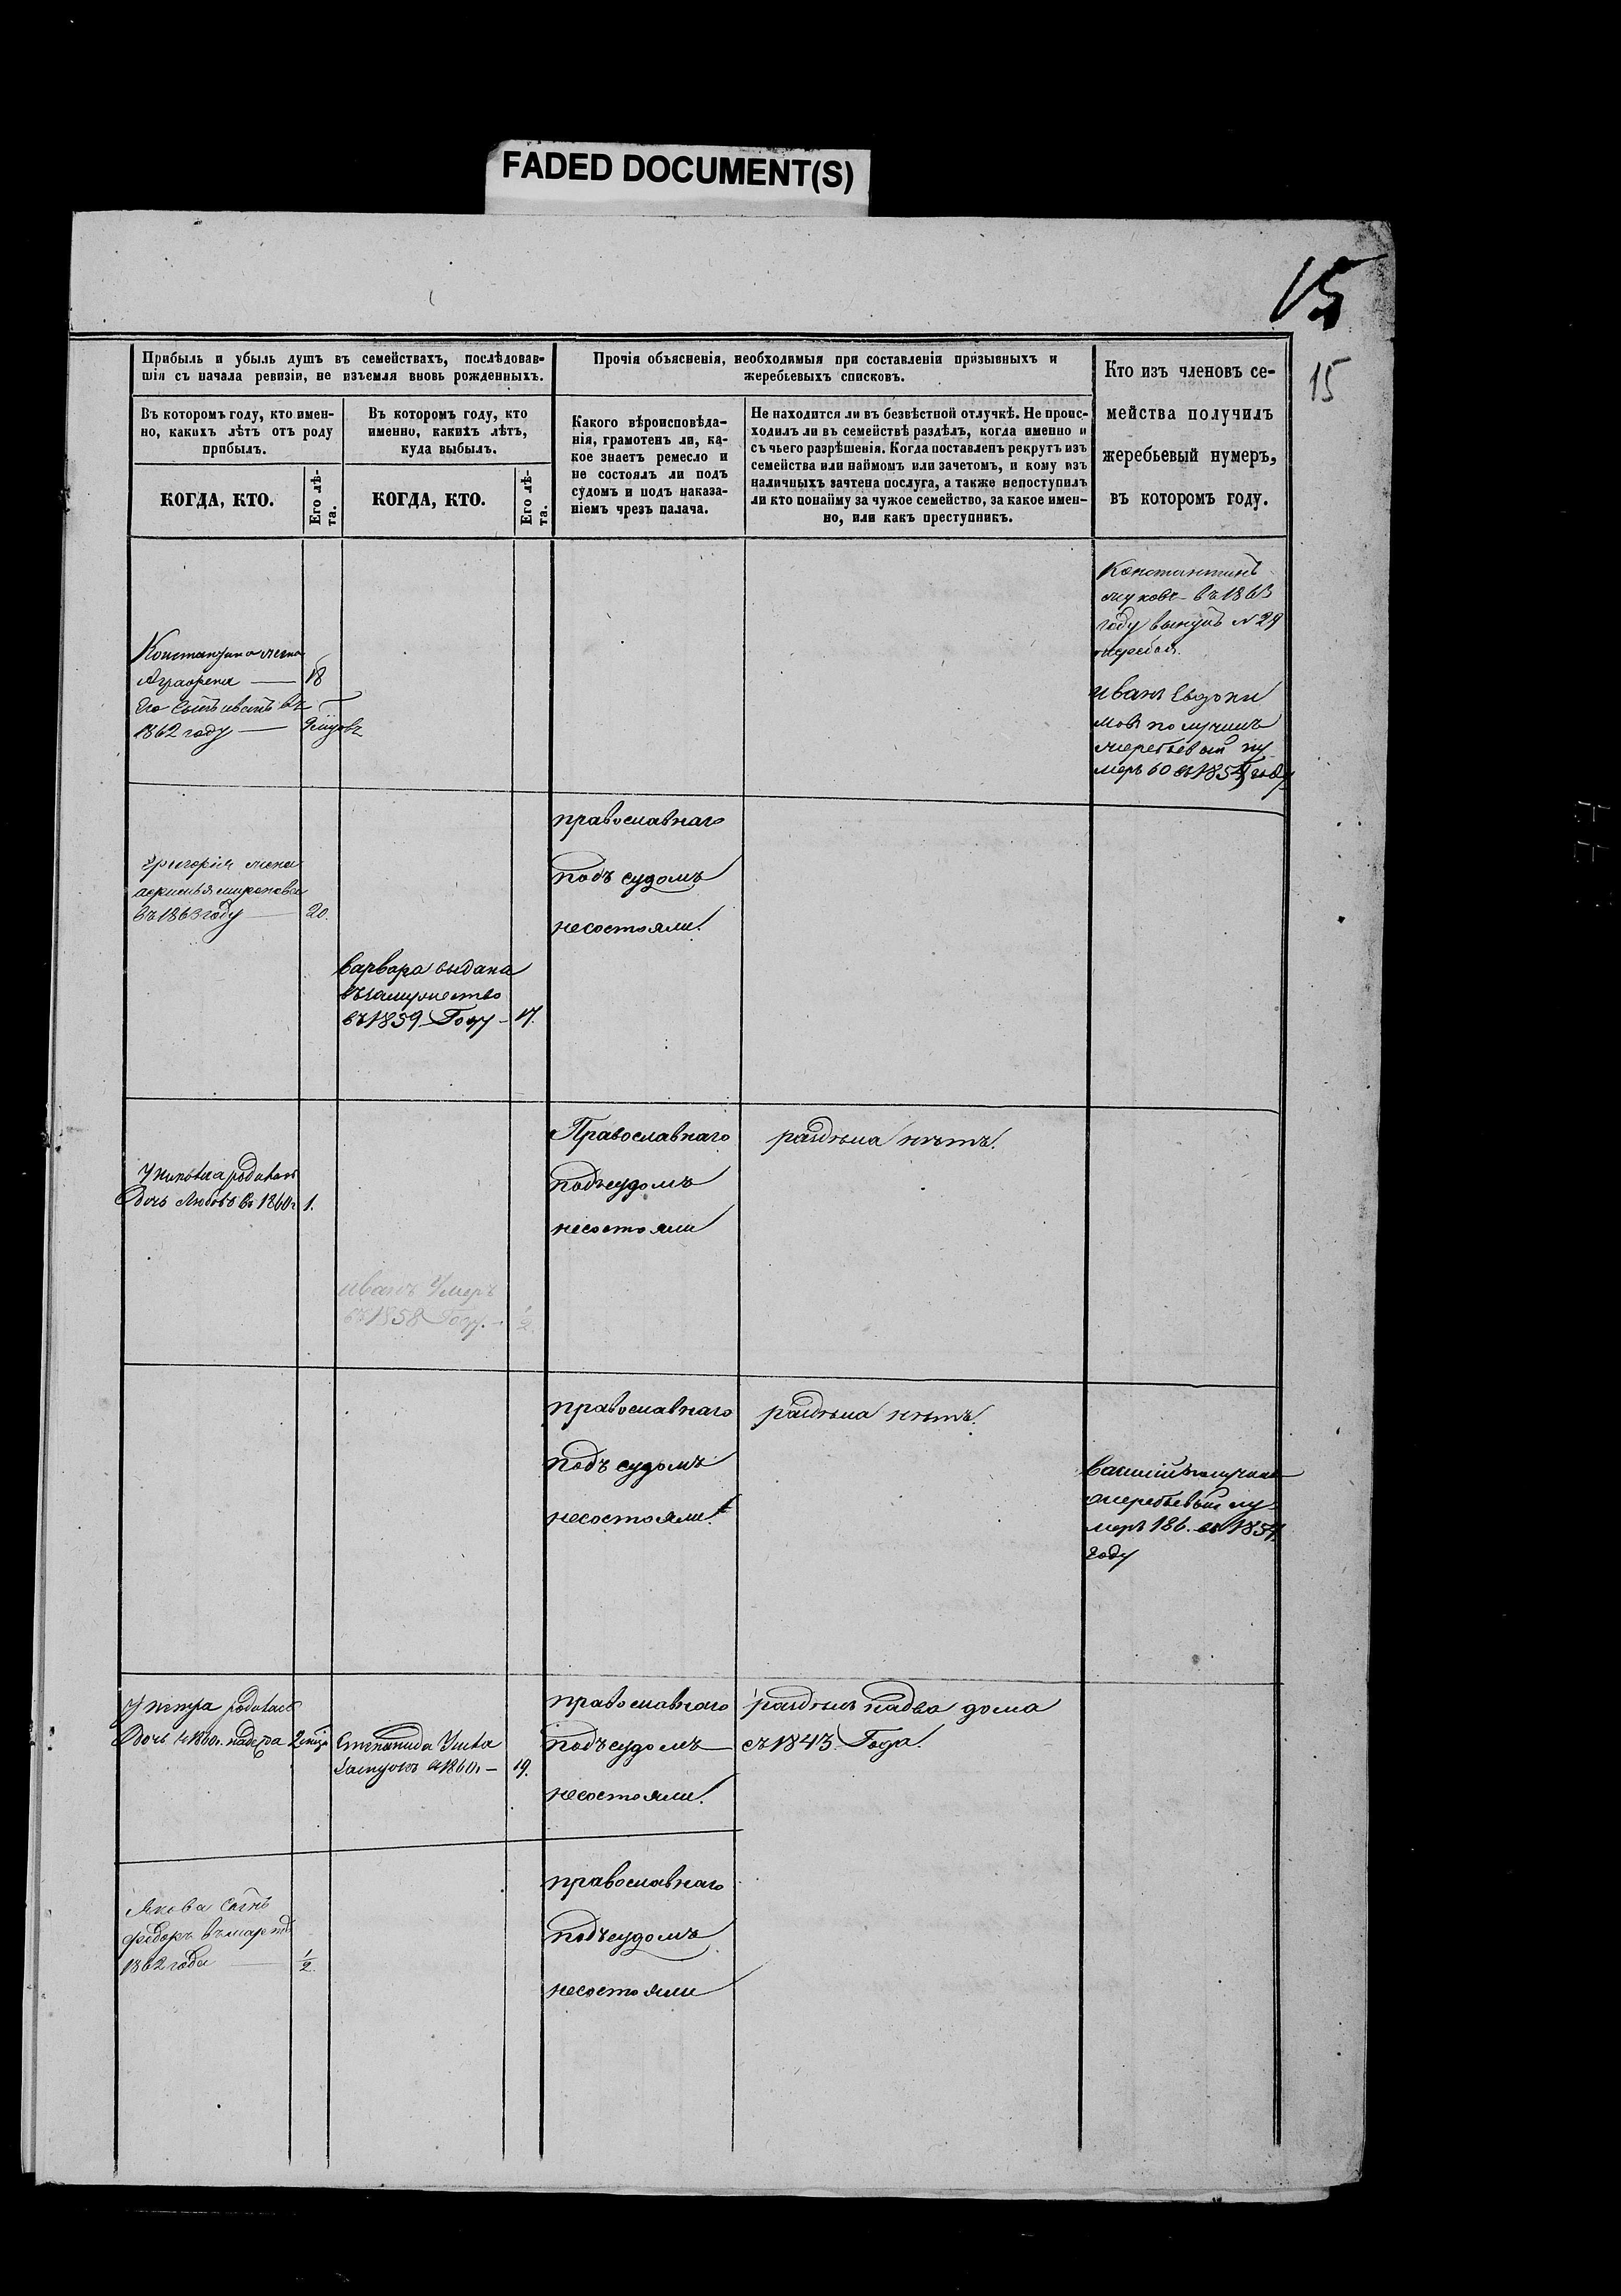 FADED DOCUMENT(S)
15
15
Прибыль и убыль душъ въ семействахъ, послѣдовав-
шія съ начала ревизіи, не изъемля вновь рожденныхъ.
Прочія объясненія, необходимыя при составленіи призывныхъ и
жеребьевыхъ списковъ.
Кто изъ членовъ се-
мейства получилъ
жеребьевый нумеръ,
въ которомъ году.
Въ которомъ году, кто имен-
но, какихъ лѣтъ отъ роду
прибылъ.
Въ которомъ году, кто
именно, какихъ лѣтъ,
куда выбылъ.
Какого вѣроисповѣда-
нія, грамотенъ ли, ка-
кое знаетъ ремесло и
не состоялъ ли подъ
судомъ и подъ наказа-
ніемъ чрезъ палача.
Не находится ли въ безвѣстной отлучкѣ. Не проис-
ходилъ ли въ семействѣ раздѣлъ, когда именно и
съ чьего разрѣшенія. Когда поставленъ рекрутъ изъ
семейства или наймомъ или зачетомъ, и кому изъ
наличныхъ зачтена послуга, а также непоступилъ
ли кто понайму за чужое семейство, за какое имен-
но, или какъ преступникъ.
КОГДА, КТО.
Его лѣ-
та.
КОГДА, КТО.
Его лѣ-
та.
Константинъ
въ 1863
году вынулъ №29
жеребья.
Константина жена
Аграфена — 18
Его сынъ иванъ въ
1862 году —
иванъ Евдоки
мовъ получилъ
жеребьевый ну
меръ 60 въ 1854 году
православнаго
подъ судомъ
несостояли.
григорія жена
мироновна
въ 1863 году — 20.
варвара выдана
въ замужество
въ 1859 Году - 17.
Православнаго
подъ судомъ
несостояли
раздѣла нѣтъ.
У родилась
дочь Любовь въ 1860 г 1.
иванъ Умеръ
въ 1858 Году. - 1/2.
православнаго
подъ судомъ
несостояли.
раздѣла нѣтъ.
василій получилъ
жеребьевый ну
меръ 186. въ 1854
году
У петра родилась
дочь в 1860г. 2
Степанида
замужъ в 1860г — 19.
православнаго
подъ судомъ
несостояли.
раздѣлъ на два дома
съ 1843 Года.
Якова Сынъ
федоръ въ мартѣ
1862 года — 1/2.
православнаго
подъ судомъ
несостояли